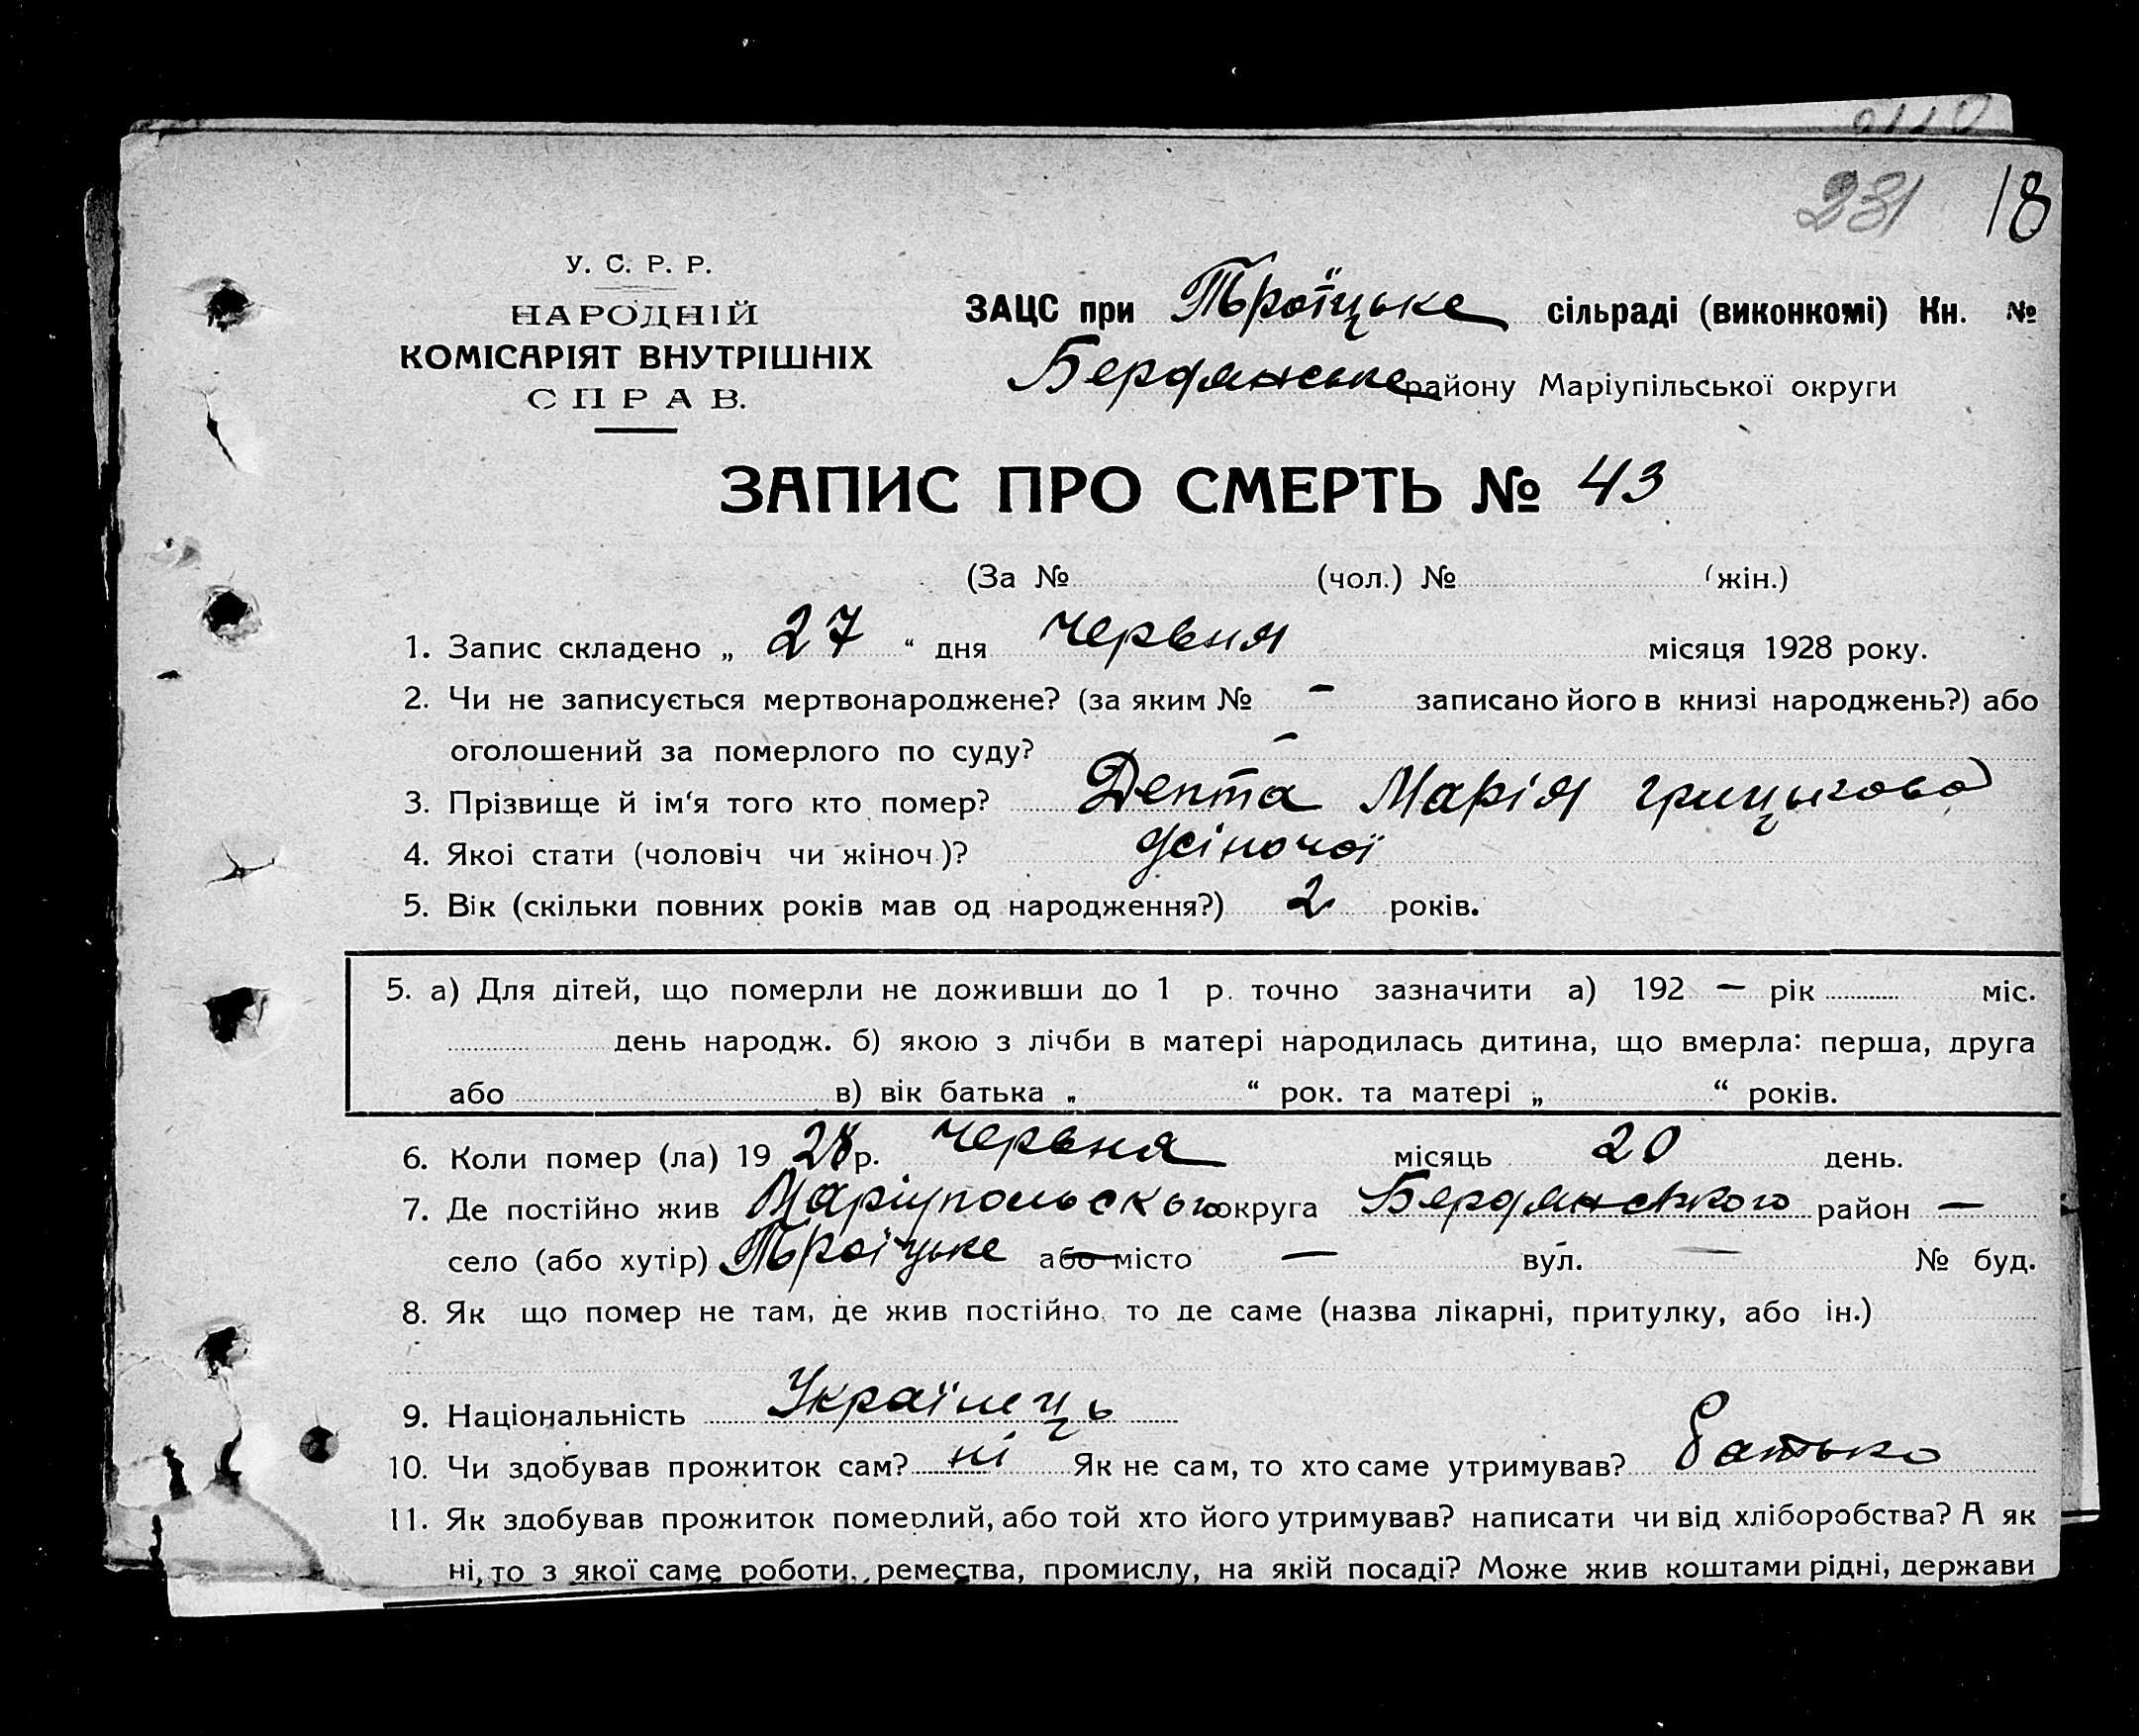 231 18
У. С. Р. Р.
НАРОДНІЙ
КОМІСАРІЯТ ВНУТРІШНІХ
СПРАВ.
ЗАЦС при Троїцьке сільраді (виконкомі) Кн. №
Бердянське району Маріупільської округи
ЗАПИС ПРО СМЕРТЬ № 43
(За № (чол.) № (жін.)
1. Запис складено „ 27 “ дня червня місяця 1928 року.
2. Чи не записується мертвонароджене? (за яким № - записано його в книзі народжень?) або
оголошений за померлого по суду? -
3. Прізвище й ім'я того кто помер? Депта Марія грицькова
4. Якоі стати (чоловіч чи жіноч.)? жіночої
5. Вік (скільки повних років мав од народження?) 2 років.
5. а) Для дітей, що померли не доживши до 1 р. точно зазначити а) 192 — рік міс.
день народж. б) якою з лічби в матері народилась дитина, що вмерла: перша, друга
або в) вік батька „ “ рок. та матері „ “ років.
6. Коли помер (ла) 19 28 р. червня місяць 20 день.
7. Де постійно жив Маріупольского округа Бердянського район —
село (або хутір) Троїцьке або місто — вул. — № буд.
8. Як що помер не там, де жив постійно, то де саме (назва лікарні, притулку, або ін.)
9. Національність Українець
10. Чи здобував прожиток сам? ні Як не сам, то хто саме утримував? батько
11. Як здобував прожиток померлий, або той хто його утримував? написати чи від хліборобства? А як
ні, то з якої саме роботи, ремества, промислу, на якій посаді? Може жив коштами рідні, держави